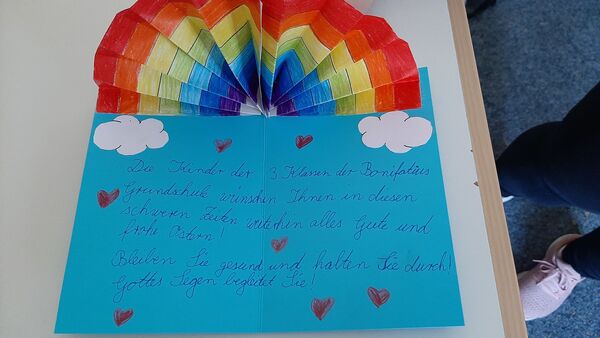 Die Kinder der 3 Klassen der Bonifatius
Grundschule wünschen Ihnen in diesen
schweren Zeiten weiterhin alles Gute und
frohe Ostern!
Bleiben Sie gesund und halten Sie durch!
Gottes Segen begleitet Sie!